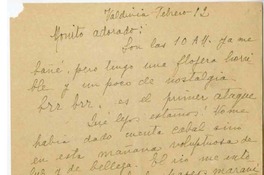 Valdivia Febrero 12
Monito adorado:
Son las 10 A.M. ya me
bañé, pero tengo una flojera horri
ble y un poco de nostalgia
brr brr. es el primer ataque
Qué lejos estamos! No me
había dado cuenta cabal sino
en esta mañana voluptuosa de
luz y de belleza. El río me